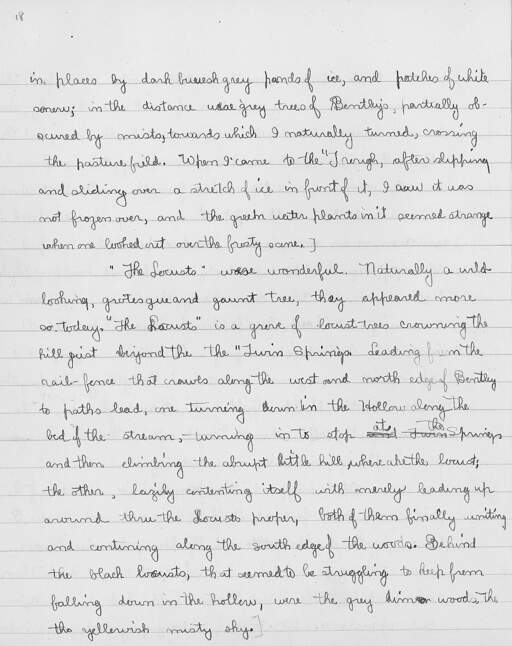 18
in places by dark blueish grey ponds of ice, and patches of white
snow; in the distance were grey trees of Bentley's, partially ob-
scured by mists, towards which I naturally turned, crossing
the pasture field. When I came to the "Trough, after slipping
and sliding over a stretch of ice in front of it, I saw it was
not frozen over, and the green water plants in it seemed strange
when one looked out over the frosty scene.]
"The Locusts" were wonderful. Naturally a wild
looking, grotesque and gaunt tree, they appeared more
so today. "The Locusts" is a grove of locust trees crowning the
hill just beyond the the "Twin Springs. Leading from the
rail-fence that crawls along the west and north edge of Bentley
to paths lead, one turning down in the Hollow along the
bed of the stream, - turning in to stop at the Twin Springs
and then climbing the abrupt little hill, where are the locust;
the other, lazily contenting itself with merely leading up
around thru the Locusts proper, both of them finally uniting
and continuing along the south edge of the woods. Behind
the black locusts, that seemed to be struggling to keep from
falling down in the hollow, were the grey woods, the
the yellowish misty sky.]